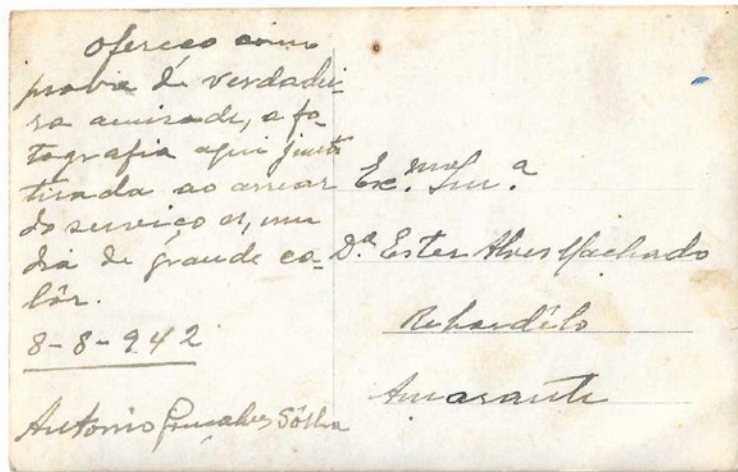 Ofereço como
prova de verdadei-
ra amizade, a fo-
tografia aqui junta
tirada ao arrear
do serviço e, num
dia de grande ca-
lôr.
8-8-942
Antonio Gonçalves
Exc.ma Snr.a
D.a Ester Alves Machado
Rebordêlo
Amarante